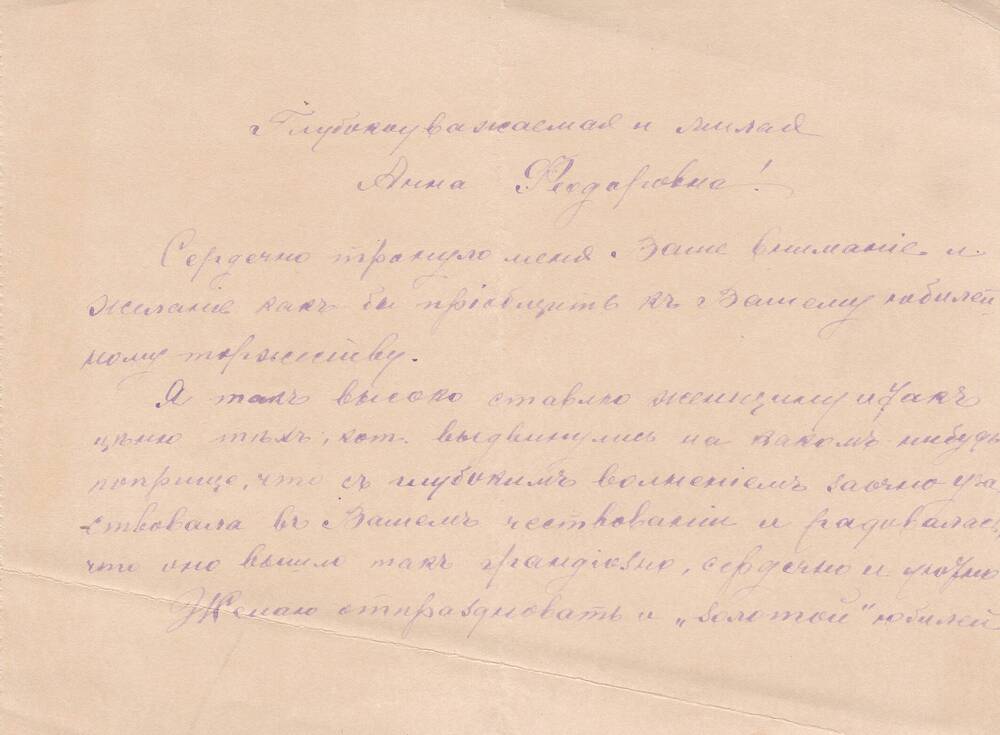 Глубокоуважаемая и милая
Анна Феодоровна!
Сердечно тронуло меня Ваше вниманіе и
желаніе какъ бы пріобщить къ Вашему юбилей
ному торжеству.
Я такъ высоко ставлю женщину и такъ
цѣню тѣхъ, кот. выдвинулись на какомъ нибудь
поприще, что съ глубокимъ волненіемъ заочно уча
ствовала въ Вашемъ чествованіи и радовалась,
что оно вышло такъ грандіозно, сердечно и
Желаю отпраздновать и „золотой" юбилей